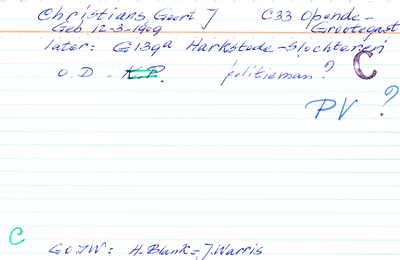 Christians, Geert J C33 Opende-
Geb 12-3-1909 Grootegast
later: G139a Harkstede-Slochteren
O.D - K.P. politieman? C
PV ?
C
GOIW: H. Blank = J. Warris